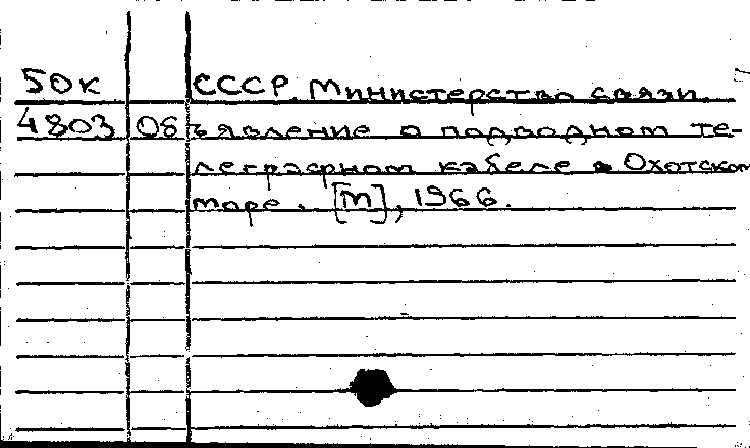 50к СССР. Министерство связи.
4803 Объявление о подводном те-
леграфном кабеле в Охотском
море. [М], 1966.